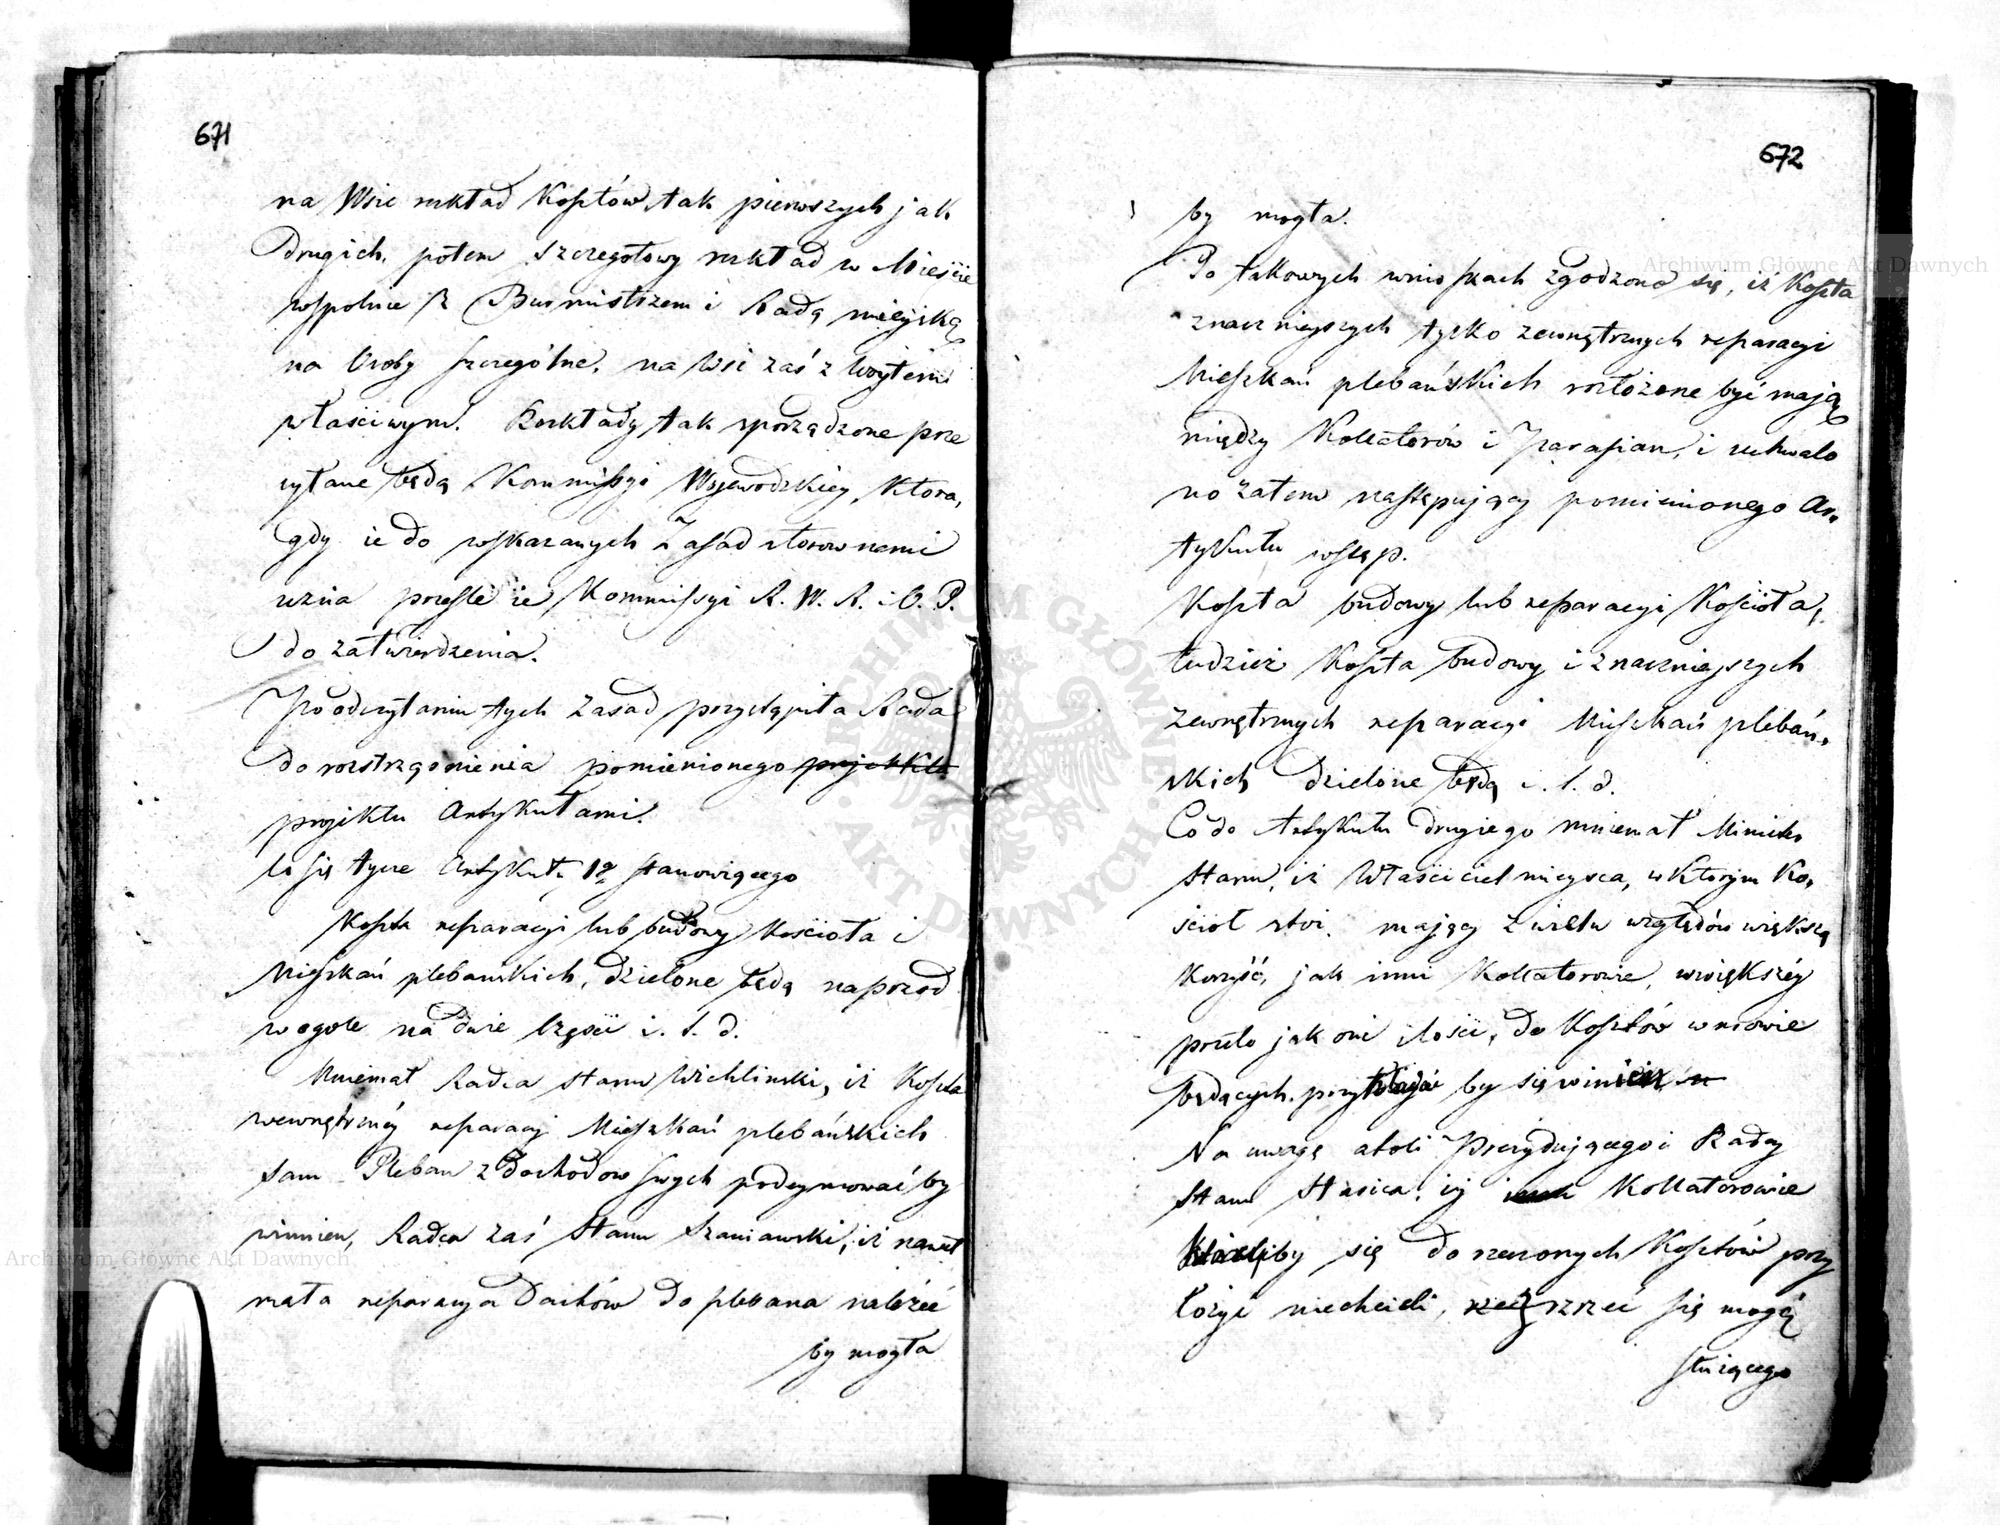 671
na Wsie rozkład Kosztów, tak pierwszych jak
drugich, potem szczegołowy rozkład w Mieście
wspolnie z Burmistrzem i Radą mieyską
na Osoby szczególne, na Wsi zaś z Woytem
właściwym. Rozkłady tak sporządzone prze
syłane będą Kommissyi Wojewodzkiey, ktora,
gdy ie do wskazanych Zasad stosownemi
uzna prześle ie Kommissyi R. W. R. i O. P.
do zatwierdzenia.
Po odczytaniu tych Zasad przystąpiła Rada
do rozstrząśnienia pomienionego projektu
projektu Artykułami.
Co się tycze Artykułu 1o stanowiącego
Koszta reparacyi lub budowy Kościoła i
Mieszkań plebańskich, dzielone będą naprzód
w ogole na dwie Części i. t. d.
Mniemał Radca Stanu Wichliński, iż Koszta
wewnętrznéy reparacyi Mieszkań plebańskich
sam Pleban z dochodow swych podeymować by
winien, Radca zaś Stanu Szaniawski, iż nawet
mała reparacya Dachów do plebana należeć
by mogła
672
by mogła.
Po takowych wnioskach zgodzono się, iż Koszta
znacznieyszych tylko zewnętrznych reparacyi
Mieszkań plebańskich rozłożone być mają
między Kollatorów i Parafian, i uchwalo
no zatem następujący pomienionego Ar„
tykułu wstęp.
Koszta budowy lub reparacyi Kościoła,
tudzież Koszta budowy i znacznieyszych
zewnętrznych reparacyi Mieszkań plebań„
skich dzielone będą i. t. d.
Co do Artykułu drugiego mniemał Minister
Stanu, iż Właściciel mieysca, w ktorym Ko„
ściol stoi, mający z wielu względów większą
Korzyść, jak inni Kollatorowie, w większéy
przeto jak oni ilości, do Kosztów w mowie
będących, przykładać by się winien
Na uwagę atoli Prezydującego i Radcy
Stanu Stasica, iż Kollatorowie
którzyby się do rzeczonych Kosztów przy
łożyć niechcieli, zrzec się mogą
służącego